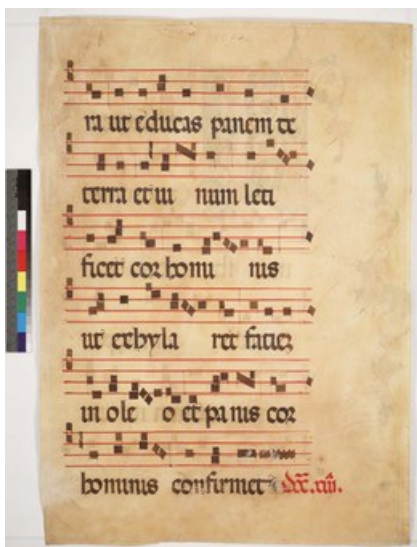 ra ut educas panem de
terra et ui num leti
ficet cor homi nis
ut exhyla ret faciem
in ole o et panis cor
hominis confirmet